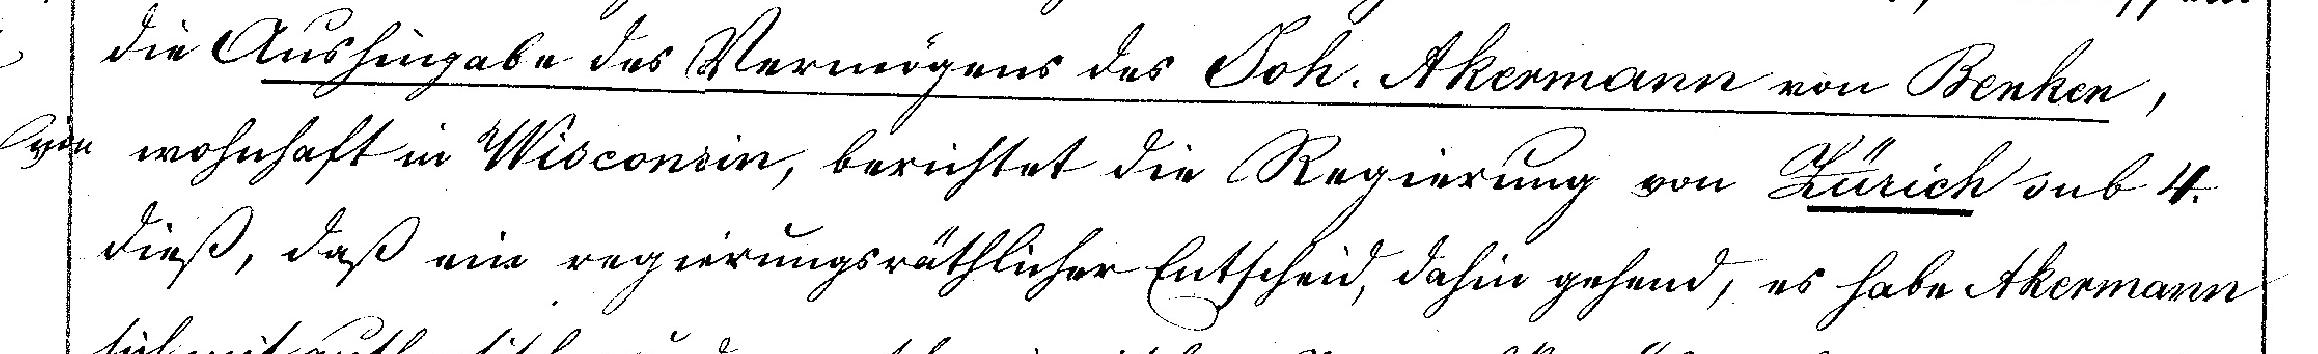 die Aushingabe des Vermögens des Joh. Akermann von Benken,
wohnhaft in Wisconsin, berichtet die Regierung von Zürich sub 4.
dieß, daß ein regierungsräthlicher Entscheid, dahin gehend, es habe Akermann